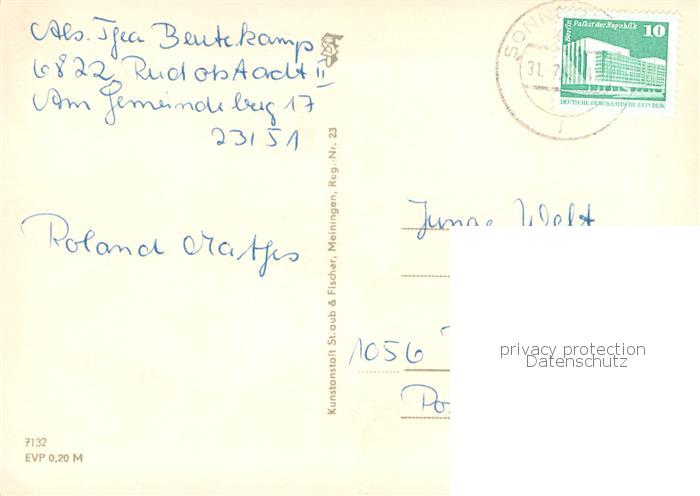 Abs. Igea Beutekamp
6822 Rudolstadt II
Am Gemeindeberg 17
23151
Roland Matjes
Kunstanstalt Straub & Fischer, Meiningen, Reg.-Nr. 23
7132
EVP 0,20 M
SONN
31.-7
Berlin Palast der Republik
10
DEUTSCHE DEMOKRATISCHE REPUBLIK
Junge Welt
1056
Po
privacy protection
Datenschutz